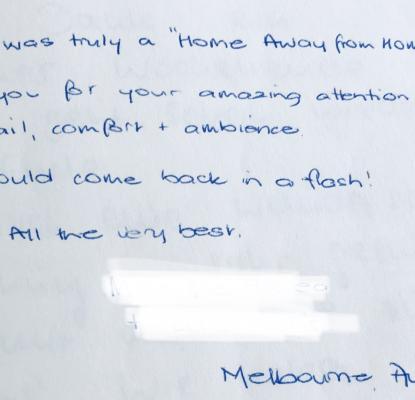 was truly a "Home Away from Hom
you for your amazing attention
ail, comfort + ambience.
ould come back in a flash!
All the very best.
+
Melbourne, Au